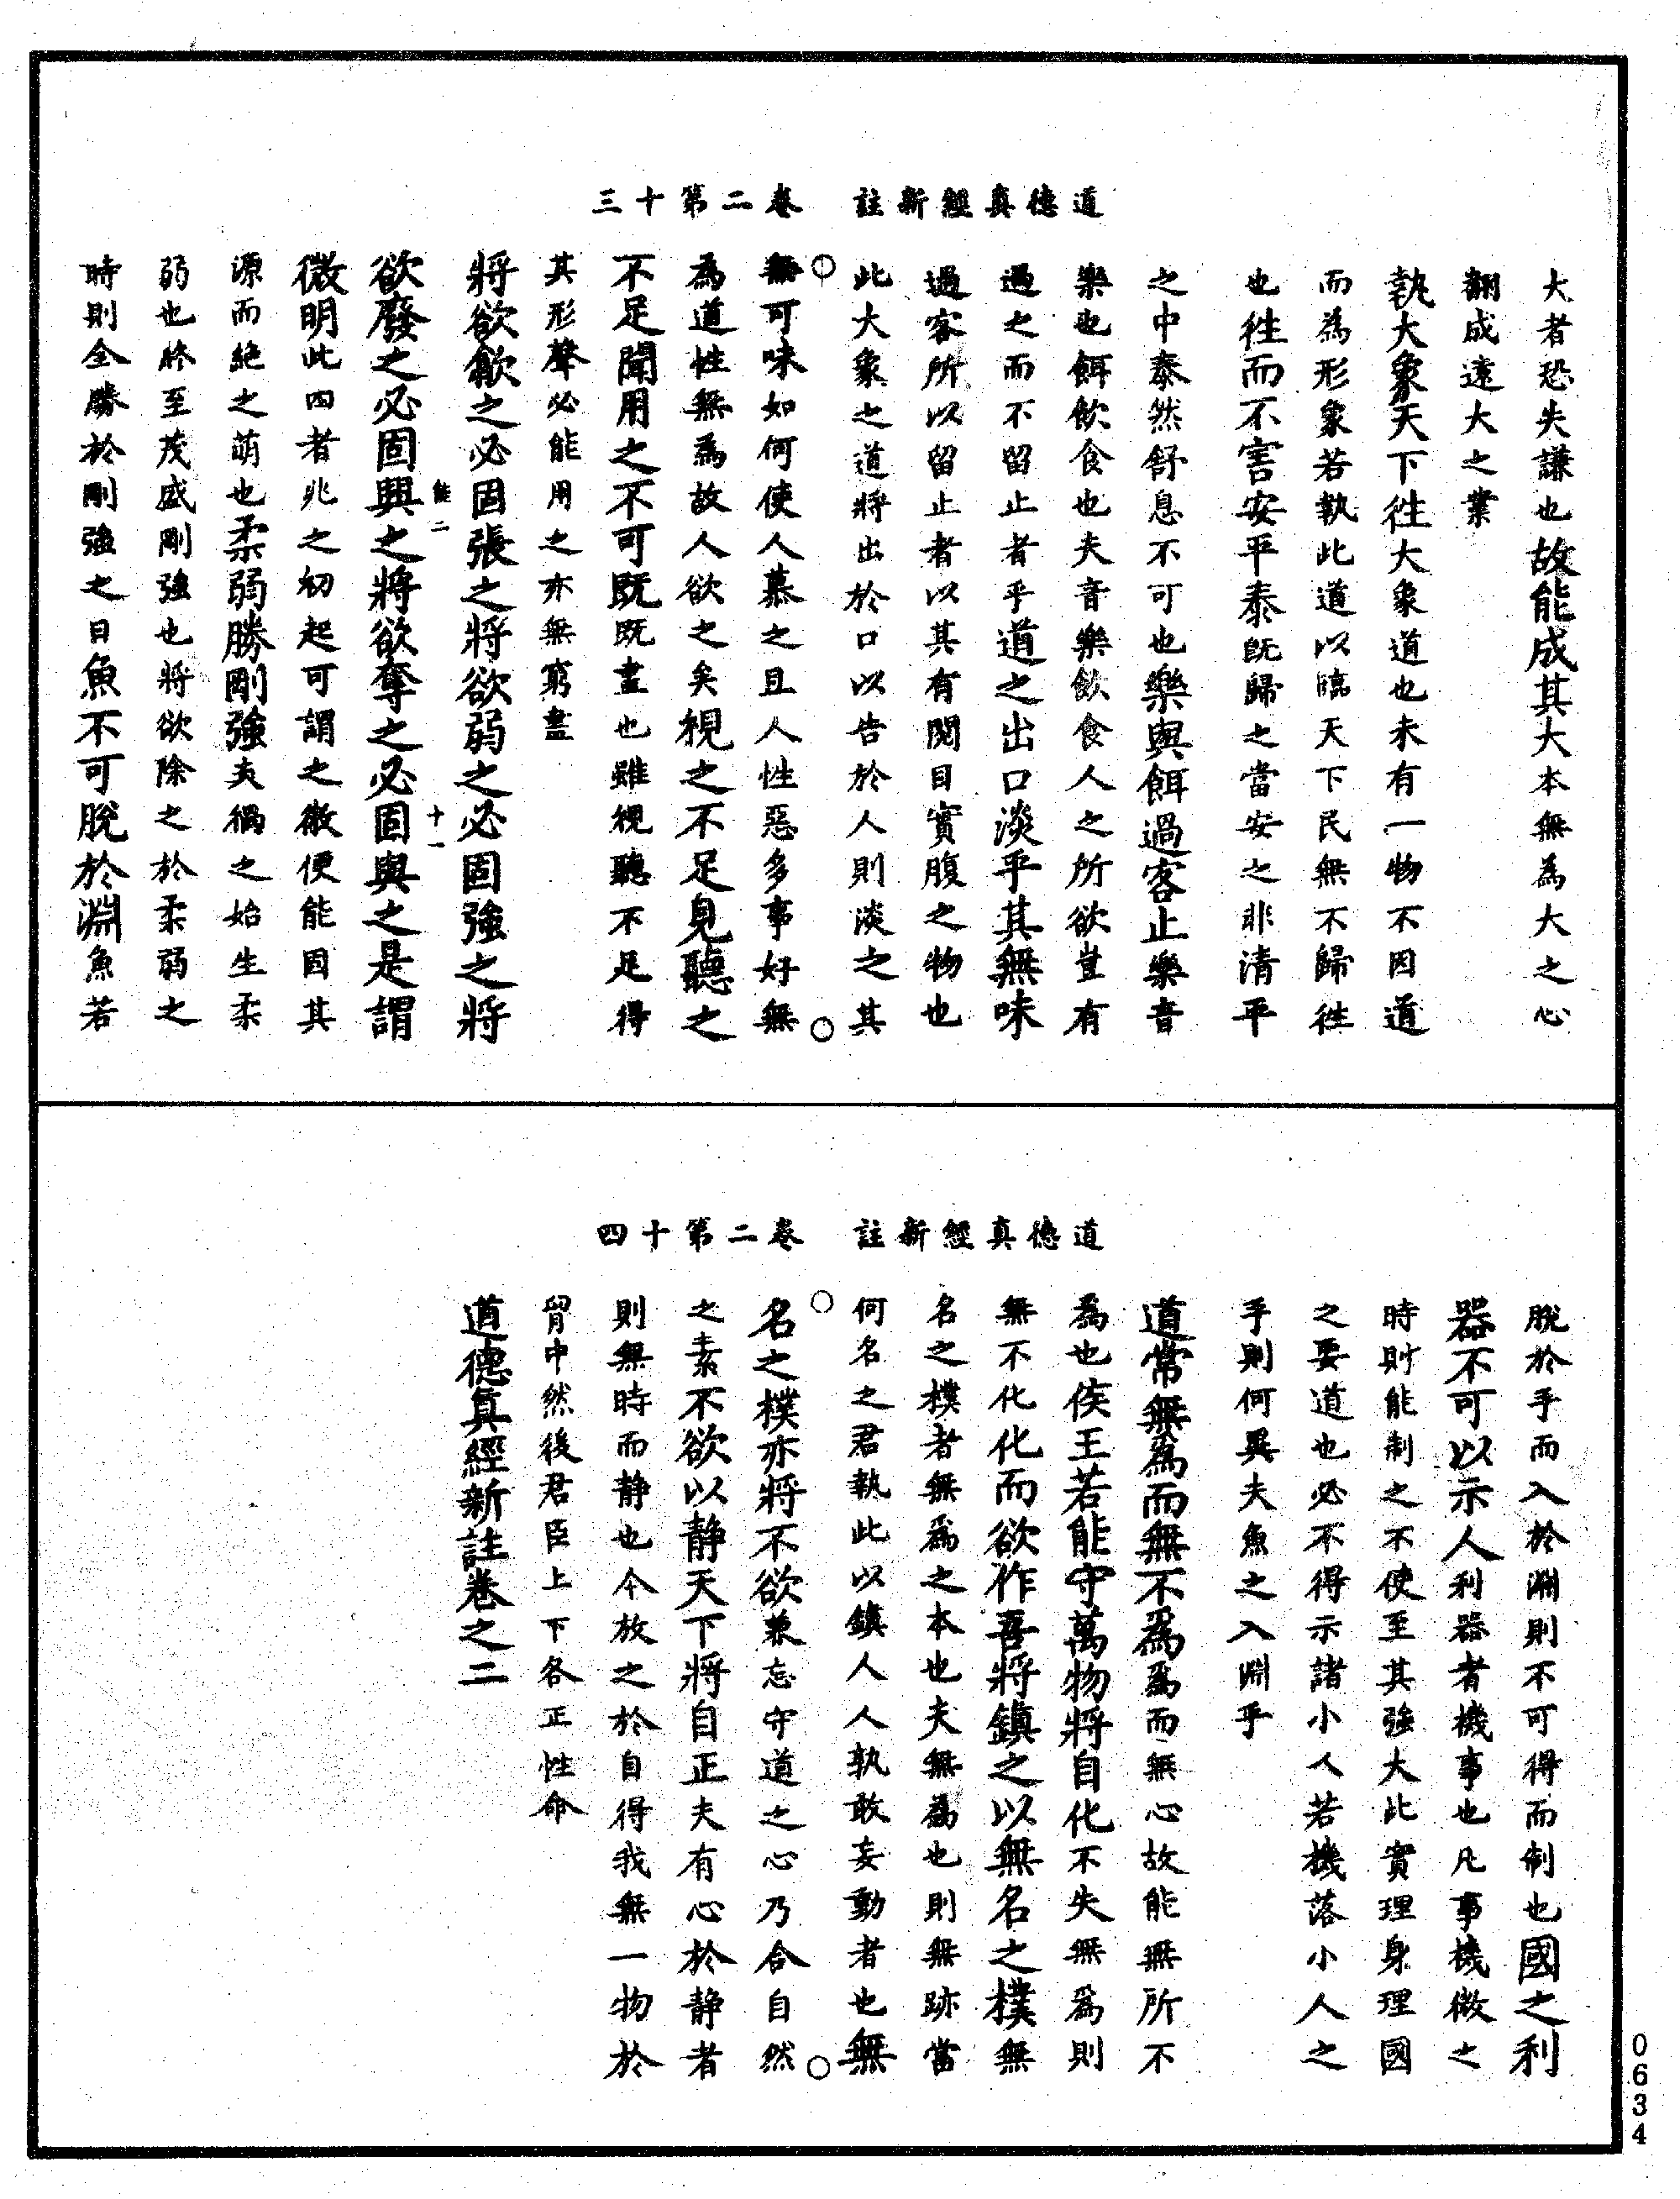 道德真經新註　卷二第十三
大者恐失謙也故能成其大本無為大之心
翻成遠大之業
執大象天下徃大象道也未有一物不因道
而為形象若執此道以臨天下民無不歸徃
也徃而不害安平泰既歸之當安之非清平
之中泰然舒息不可也樂與餌過客止樂音
樂也餌飲食也夫音樂飲食人之所欲豈有
過之而不留止者乎道之出口淡乎其無味
過客所以留止者以其有閱目實腹之物也
此大象之道將出於口以告於人則淡之其
無可味如何使人慕之且人性惡多事好無
為道性無為故人欲之矣視之不足見聽之
不足聞用之不可既既盡也雖視聽不足得
其形聲必能用之亦無窮盡
將欲歙之必固張之將欲弱之必固強之將
能二　十一
欲廢之必固興之將欲奪之必固與之是謂
微明此四者兆之初起可謂之微便能因其
源而絕之萌也柔弱勝剛強夫禍之始生柔
弱也終至茂盛剛強也將欲除之於柔弱之
時則全勝於剛強之日魚不可脫於淵魚若
道德真經新註　卷二第十四
脫於手而入於淵則不可得而制也國之利
器不可以示人利器者機事也凡事機微之
時則能制之不使至其強大此實理身理國
之要道也必不得示諸小人若機落小人之
手則何異夫魚之入淵乎
道常無為而無不為為而無心故能無所不
為也侯王若能守萬物將自化不失無為則
無不化化而欲作吾將鎮之以無名之樸無
名之樸者無為之本也夫無為也則無跡當
何名之君執此以鎮人人孰敢妄動者也無
名之樸亦將不欲兼忘守道之心乃合自然
之素不欲以静天下將自正夫有心於静者
則無時而静也今放之於自得我無一物於
胷中然後君臣上下各正性命
道德真經新註卷之二
0634